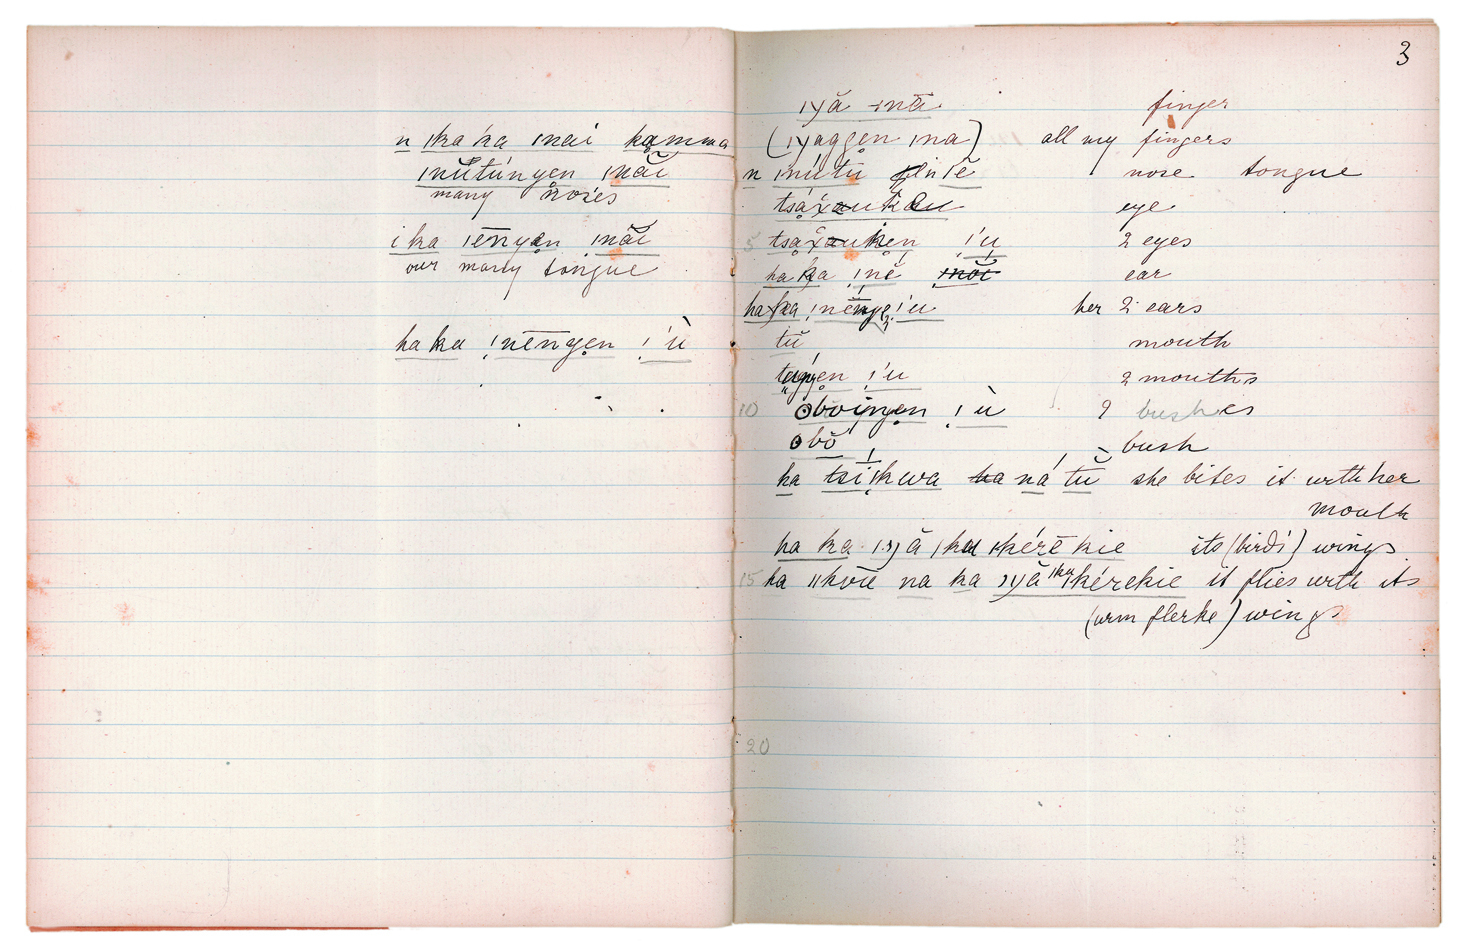 n ǀka ka ǀnai kamma
ǀnŭtúnyen ǀnăi
many noses
i ka ǀēnyen ǀnăi
our many tongue
ha ka ǃnēnyen ǃ'ù
3
ǀyă ǀnā finger
(ǀyaggen ǀna) all my fingers
n ǀnútu ǀnǀē nose tongue
tsáxaukau eye
5 tsaxauken ǃ'u 2 eyes
ha ka ǃnĕ ǃnăi ear
ha ka ǃnĕnyen ǃ'u her 2 ears
tŭ mouth
tunyen ǃ'u 2 mouths
10 ʘboinyen ǃù 2 bushes
ʘbŏ bush
ha tsíǀkwa ha ná tŭ she bites it with her
mouth
ha ka ǀyă ǀku ǀkérĕ kie its (birds') wings
15 ha ǁkŏĕ na ka ǀyă ǀku ǀkérekie it flies with its
(wm flerke) wings
20